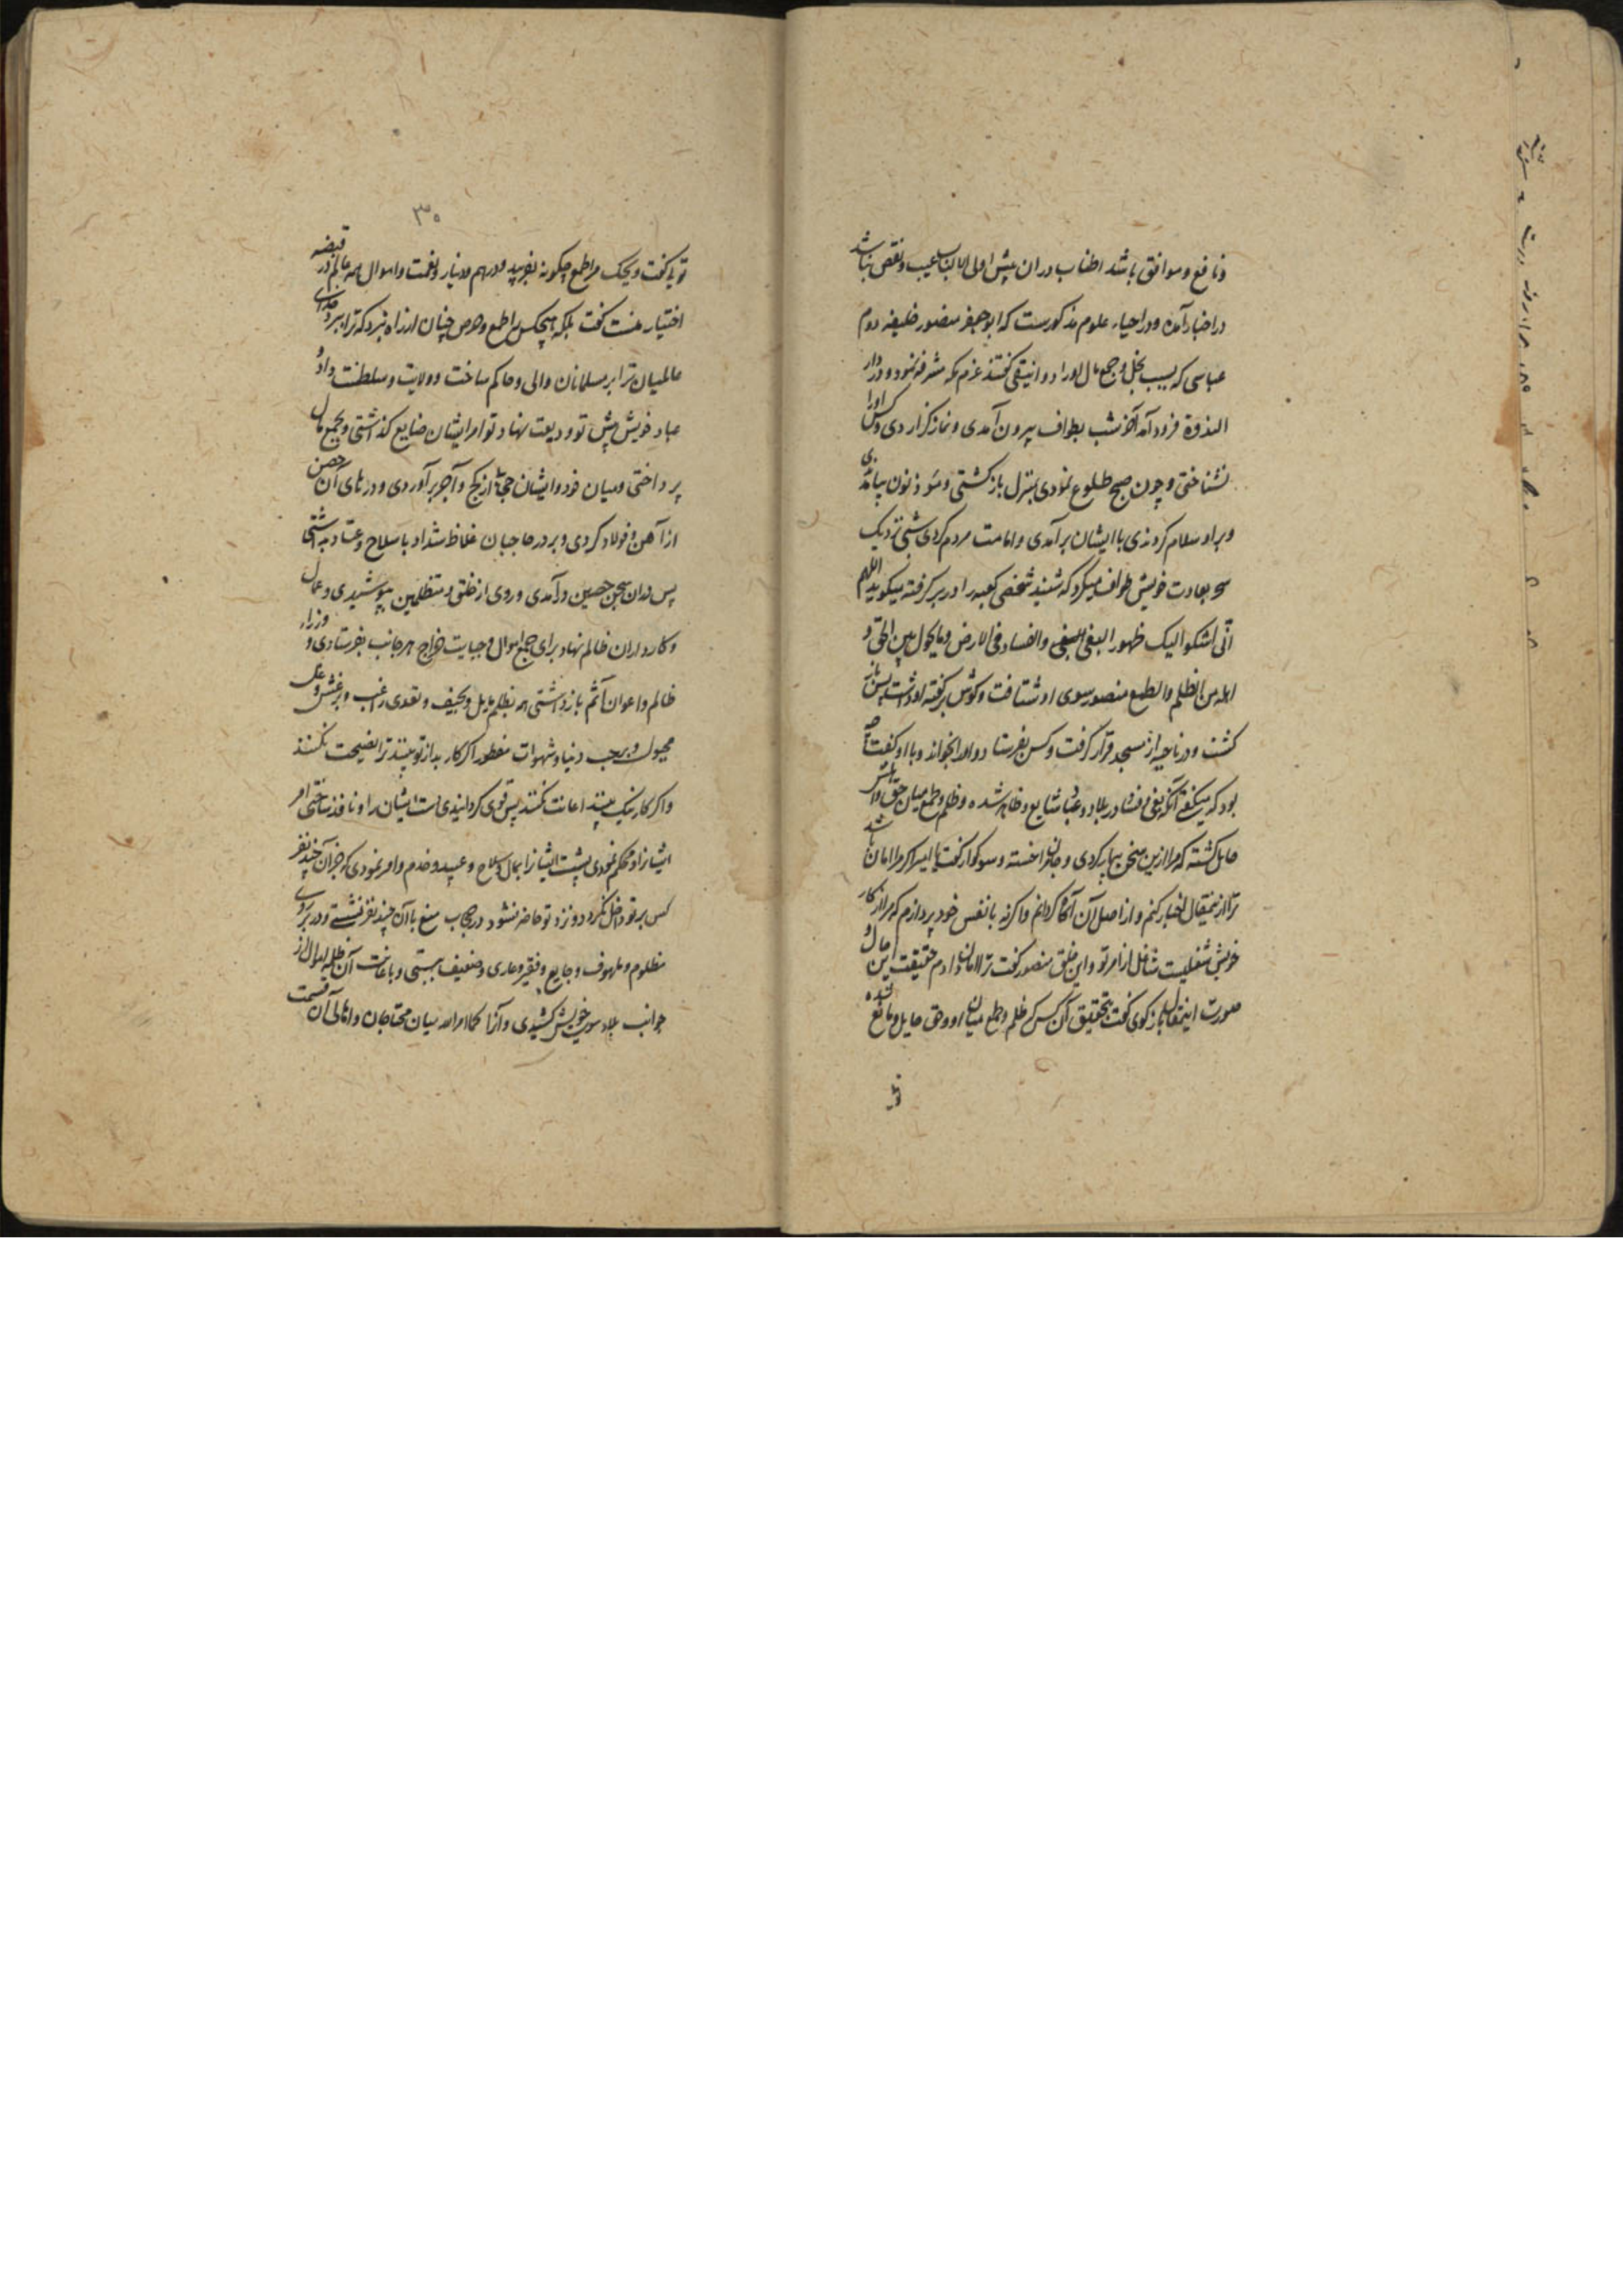 و نافع و موافق باشد اطناب در ان پیش اولی الالباب عیب و نقص نباشد
در اخبار آمده و در احیاء علوم مذکورست که ابو جعفر منصور خلیفه دوم
عباسی که بسبب بخل و جمع مال او را دوانیقی گفتند عزم مکه مشرفه نمود و در دار
الندوة فرود آمد آخر شب بطواف بیرون آمدی و نماز گزاردی و کس او را
نشناختی و چون صبح طلوع نمودی بمنزل بازگشتی و موذنون بیامدندی
و بر او سلام کردندی با ایشان برآمدی و امامت مردم کردی شبی نزدیک
سحر بعادت خویش طواف میکرد که شنید شخصی کعبه را در بر گرفته میگوید اللهم
انّی اشکوا الیک ظهور البغی والفساد فی الارض و ما یحول بین الحق و
اهله من الظلم والطمع منصور سوی او شتافت و گوش بر گفته او داشت پس باز
گشت و در ناحیه از مسجد قرار گرفت و کس بفرستاد و او را بخواند و با او گفت این چه
بود که میگفتی آنکه بغی و فساد در بلاد و عباد شایع و ظاهر شده و ظلم و طمع میان حق و اهلش
حایل گشته که مرا ازین سخن بیمار کردی و جانم را خسته و سوکوار گفت یا امیر اگر مرا امان باشد
ترا ازینمقال اخبار کنم و از اصل آن آگاه گردانم و اگر نه با نفس خود پردازم که مرا از کار
خویش شغلیست شاغل از امر تو و این خلق منصور گفت ترا امان دادم حقیقت این حال و
صورت اینمقال بازگوی گفت بتحقیق آن کس که ظلم و طمع میان او و حق حایل و مانع شده
توئ
۳۰
توئی گفت ویحک مرا طمع چگونه بفریبد و درهم و دینار و نعمت و اموال همه عالم در قبضه
اختیار منست گفت بلکه هیچکس را طمع و حرص چنان از راه نبرد که ترا ببرد خدای
عالمیان ترا بر مسلمانان والی و حاکم ساخت و ولایت و سلطنت داد و
عباد خویش پیش تو ودیعت نهاد تو امر ایشان ضایع گذاشتی و بجمع مال
پرداختی و میان خود و ایشان حجابها از گچ و آجر برآوردی و درهای آن حصن
از آهن و فولاد کردی و بر در حاجبان غلاظ شداد با سلاح و عتاد بداشتی
پس در ان سجن حصین درآمدی و روی از خلق و متظلمین بپوشیدی و عمال
و کارداران ظالم نهاد برای جمع اموال و جبایت خراج بهر جانب بفرستادی و وزراء
ظالم و اعوان آثم بازداشتی همه بظلم مایل و بحیف و تعدی راغب و بر غش و غل
مجبول و بر حب دنیا و شهوات مفطور اگر کار بد از تو بینند ترا نصیحت نکنند
و اگر کار نیک بینند اعانت نکنند پس قوی گردانیدی دست ایشان را و نافذ ساختی امر
ایشان را و محکم نمودی پشت ایشان را بمال و سلاح و عبید و خدم و امر نمودی که جز آن چند نفر
کس بر تو داخل نگردد و نزد تو حاضر نشود در حجاب منع با آن چند نفر نشستی و در بر روی
مظلوم و ملهوف و جایع و فقیر و عاری و ضعیف ببستی و باعانت آن ظلمه اموال از
جوانب بلاد سوی خویش کشیدی و آنرا کما امر الله میان محتاجان و اهالی آن قسمت